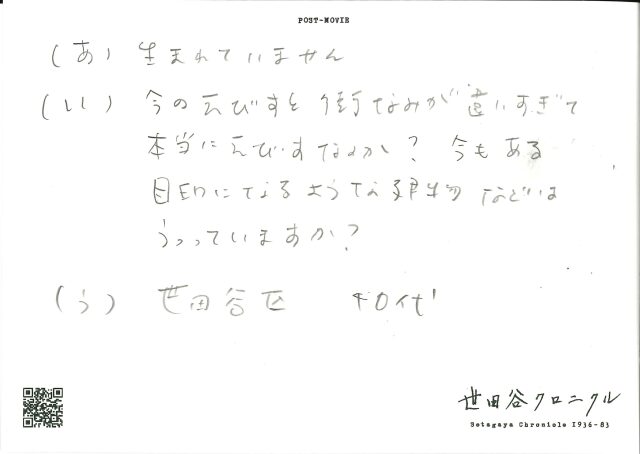 POST-MOVIE
(あ) 生まれていません
(い) 今のえびすと街なみが違いすぎて
本当にえびすなのか? 今もある
目印になるような建物などは
うつっていますか?
(う) 世田谷区 40代
世田谷クロニクル
Setagaya Chronicle 1936-83